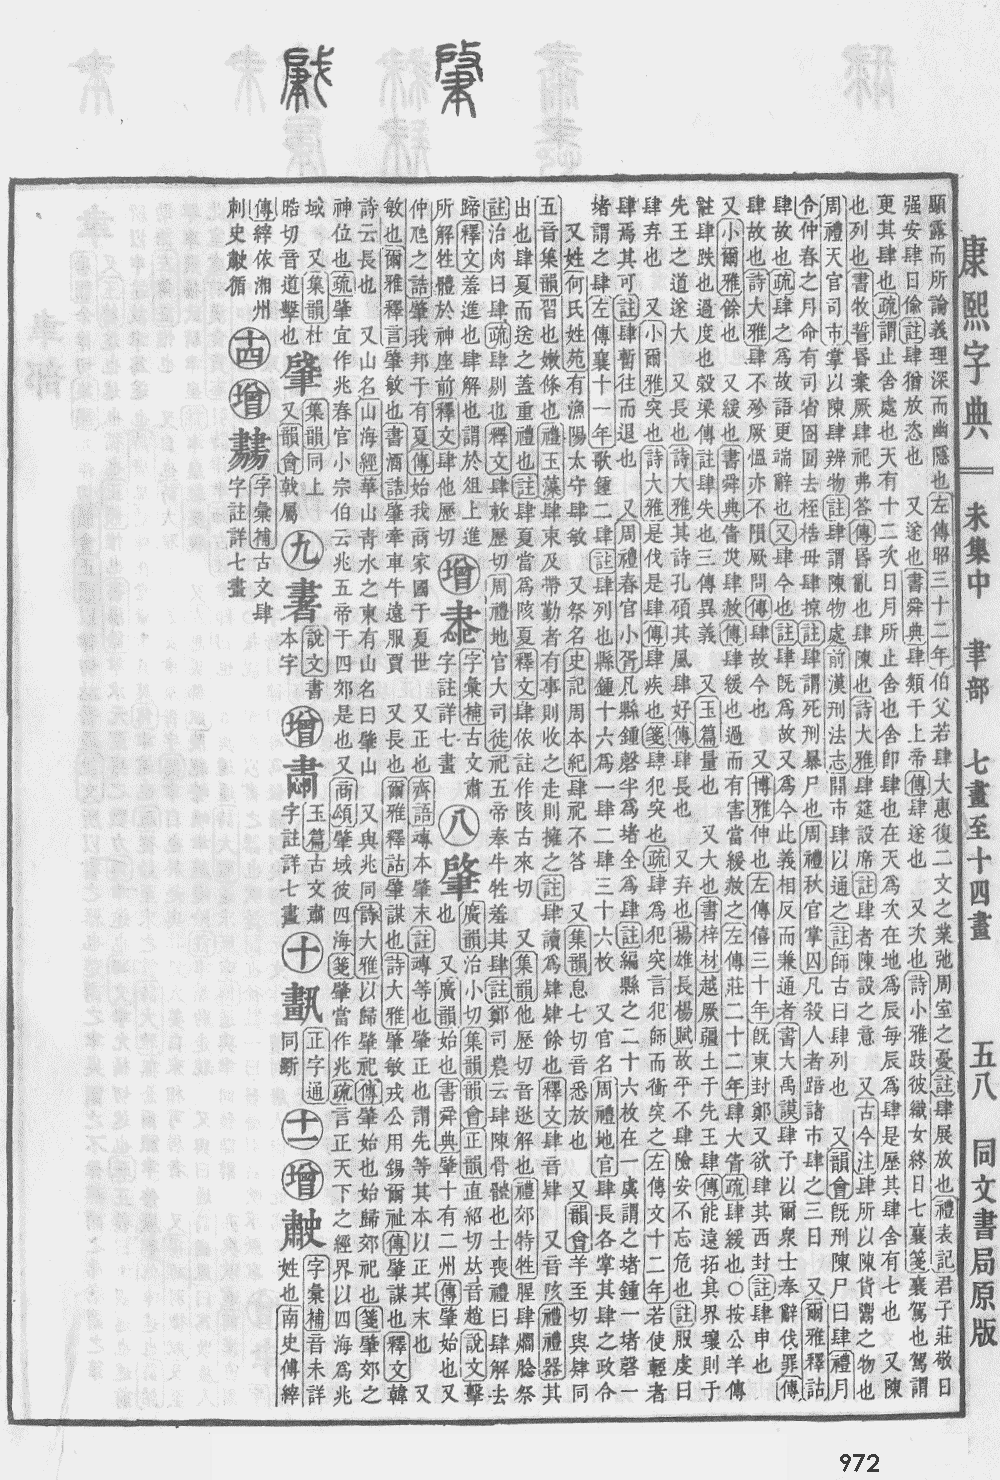 康熙字典 未集中 聿部 七畫至十四畫 五八 同文書局原版
顯露而所論義理深而幽隱也左傳昭三十二年伯父若肆大惠復二文之業弛周室之憂註肆展放也禮表記君子莊敬日
强安肆日偸註肆猶放恣也 又遂也書舜典肆類于上帝傳肆遂也 又次也詩小雅跂彼織女終日七襄箋襄駕也駕謂
更其肆也疏謂止舍處也天有十二次日月所止舍也舍卽肆也在天爲次在地爲辰每辰爲肆是歷其肆舍有七也 又陳
也列也書牧誓昬棄厥肆祀弗答傳昬亂也肆陳也詩大雅肆筵設席註肆者陳設之意 又古今注肆所以陳貨鬻之物也
周禮天官司市掌以陳肆辨物註肆謂陳物處前漢刑法志開市肆以通之註師古曰肆列也 又韻會旣刑陳尸曰肆禮月
令仲春之月命有司省囹圄去桎梏毋肆掠註肆謂死刑暴尸也周禮秋官掌囚凡殺人者踣諸市肆之三日 又爾雅釋詁
肆故也疏肆之爲故語更端辭也又肆今也註肆旣爲故又爲今此義相反而兼通者書大禹謨肆予以爾衆士奉辭伐罪傳
肆故也詩大雅肆不殄厥愠亦不隕厥問傳肆故今也 又博雅伸也左傳僖三十年旣東封鄭又欲肆其西封註肆申也
又小爾雅餘也 又緩也書舜典眚烖肆赦傳肆緩也過而有害當緩赦之左傳莊二十二年肆大眚疏肆緩也○按公羊傳
註肆跌也過度也穀梁傳註肆失也三傳異義 又玉篇量也 又大也書梓材越厥疆土于先王肆傳能遠拓其界壤則于
先王之道遂大 又長也詩大雅其詩孔碩其風肆好傳肆長也 又弃也揚雄長楊賦故平不肆險安不忘危也註服虔曰
肆弃也 又小爾雅突也詩大雅是伐是肆傳肆疾也箋肆犯突也疏肆爲犯突言犯師而衝突之左傳文十二年若使輕者
肆焉其可註肆暫往而退也 又周禮春官小胥凡縣鍾磬半爲堵全爲肆註編縣之二十六枚在一虡謂之堵鍾一堵磬一
堵謂之肆左傳襄十一年歌鍾二肆註肆列也縣鍾十六爲一肆二肆三十六枚 又官名周禮地官肆長各掌其肆之政令
又姓何氏姓苑有漁陽太守肆敏 又祭名史記周本紀肆祀不答 又集韻息七切音悉放也 又韻會羊至切與肄同
五音集韻習也嫩條也禮玉藻肆束及帶勤者有事則收之走則擁之註肆讀爲肄肄餘也釋文肆音肄 又音陔禮禮器其
出也肆夏而送之蓋重禮也註肆夏當爲陔夏釋文肆依註作陔古來切 又集韻他歷切音逖解也禮郊特牲腥肆爓腍祭
註治肉曰肆疏肆剔也釋文肆敕歷切周禮地官大司徒祀五帝奉牛牲羞其肆註鄭司農云肆陳骨體也士喪禮曰肆解去
蹄釋文羞進也肆解也謂於俎上進
所解牲體於神座前釋文肆他歷切
增 字彙補古文肅字註詳七畫
八 肇 廣韻治小切集韻韻會正韻直紹切𠀤音趙說文擊也 又廣韻始也書舜典肇十有二州傳肇始也又
仲虺之誥肇我邦于有夏傳始我商家國于夏世 又正也齊語竱本肇末註竱等也肇正也謂先等其本以正其末也 又
敏也爾雅釋言肇敏也書酒誥肇牽車牛遠服賈 又長也爾雅釋詁肇謀也詩大雅肇敏戎公用錫爾祉傳肇謀也釋文韓
詩云長也 又山名山海經華山靑水之東有山名曰肇山 又與兆同詩大雅以歸肇祀傳肇始也始歸郊祀也箋肇郊之
神位也疏肇宜作兆春官小宗伯云兆五帝于四郊是也又商頌肇域彼四海箋肇當作兆疏言正天下之經界以四海爲兆
域 又集韻杜晧切音道擊也
肈 集韻同上 又韻會戟屬
九 書 說文書本字
增 玉篇古文肅字註詳七畫
十 正字通同斲
十一 增 字彙補音未詳姓也南史傅縡
傳縡依湘州刺史 循
十四 增 字彙補古文肆字註詳七畫
972